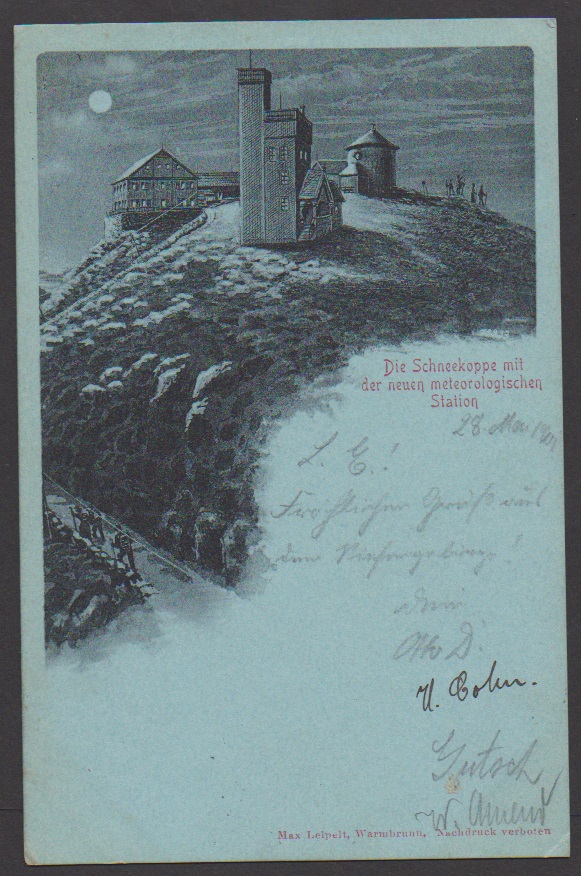 Die Schneekoppe mit
der neuen meteorologischen
Station
28. Mai 1901
L. E.!
Fröhlichen Gruß aus
dem Riesengebirge!
Dein
D.
H. Cohn.
Gutsch
W. Amend
Max Leipelt, Warmbrunn, Nachdruck verboten